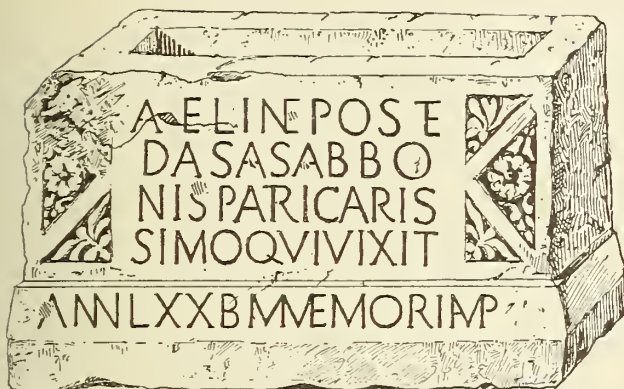 AELINEPOSTE
DASASABBO
NISPATRICARIS
SIMOQVIVIXIT
ANNLXXBMMEMORIAMP